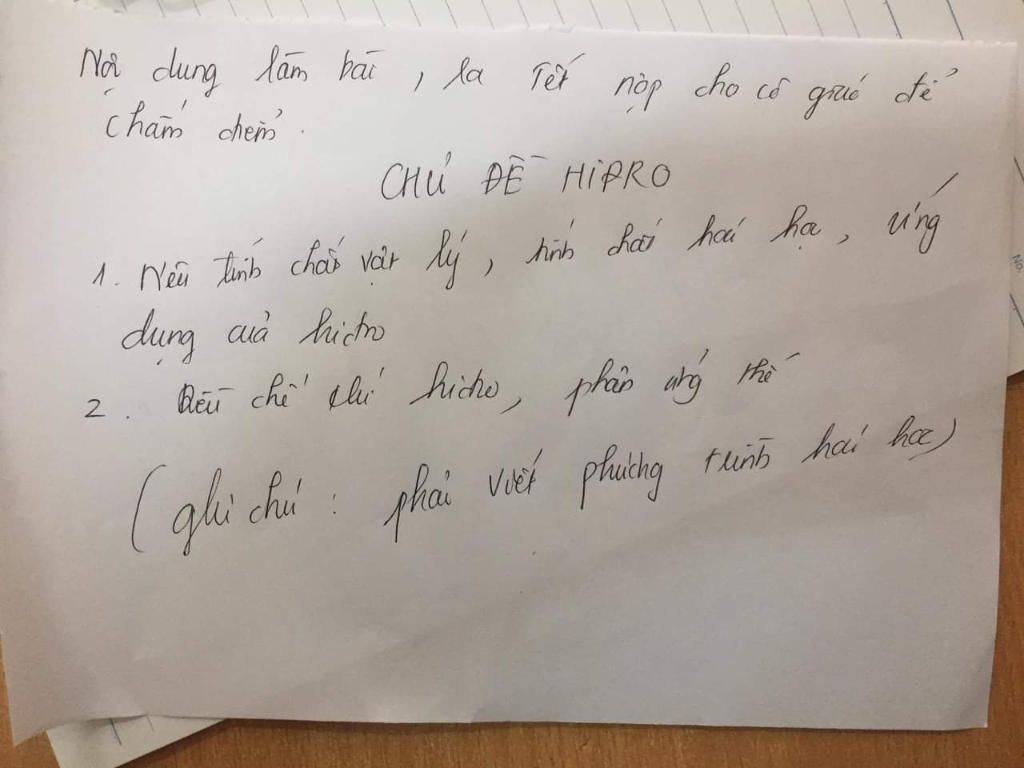 Nội dung làm bài, ra Tết nộp cho cô giáo để
chấm điểm.
CHỦ ĐỀ HIĐRO
1. Nêu tính chất vật lý, tính chất hoá học, ứng
dụng của hiđro
2. Điều chế khí hiđro, phản ứng thế
(ghi chú: phải viết phương trình hoá học)